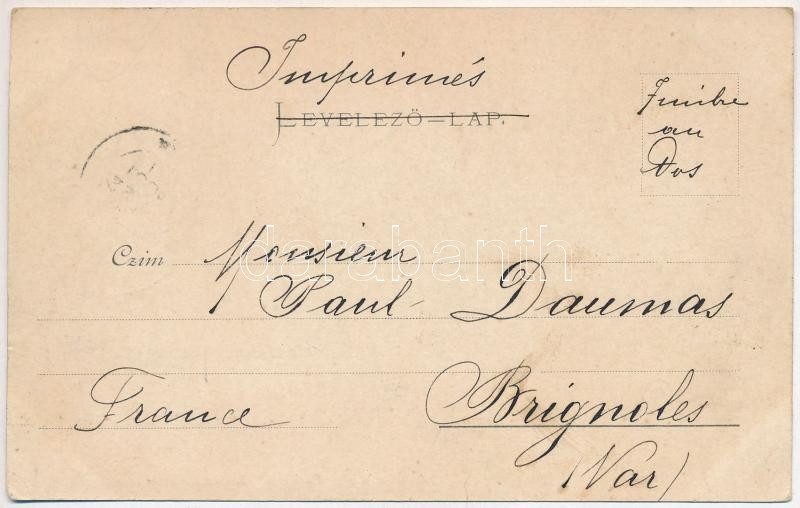 Imprimés
LEVELEZŐ-LAP.
Timbre
au
Dos
Czim Monsieur
Paul Daumas
France Brignoles
(Var)
darabanth